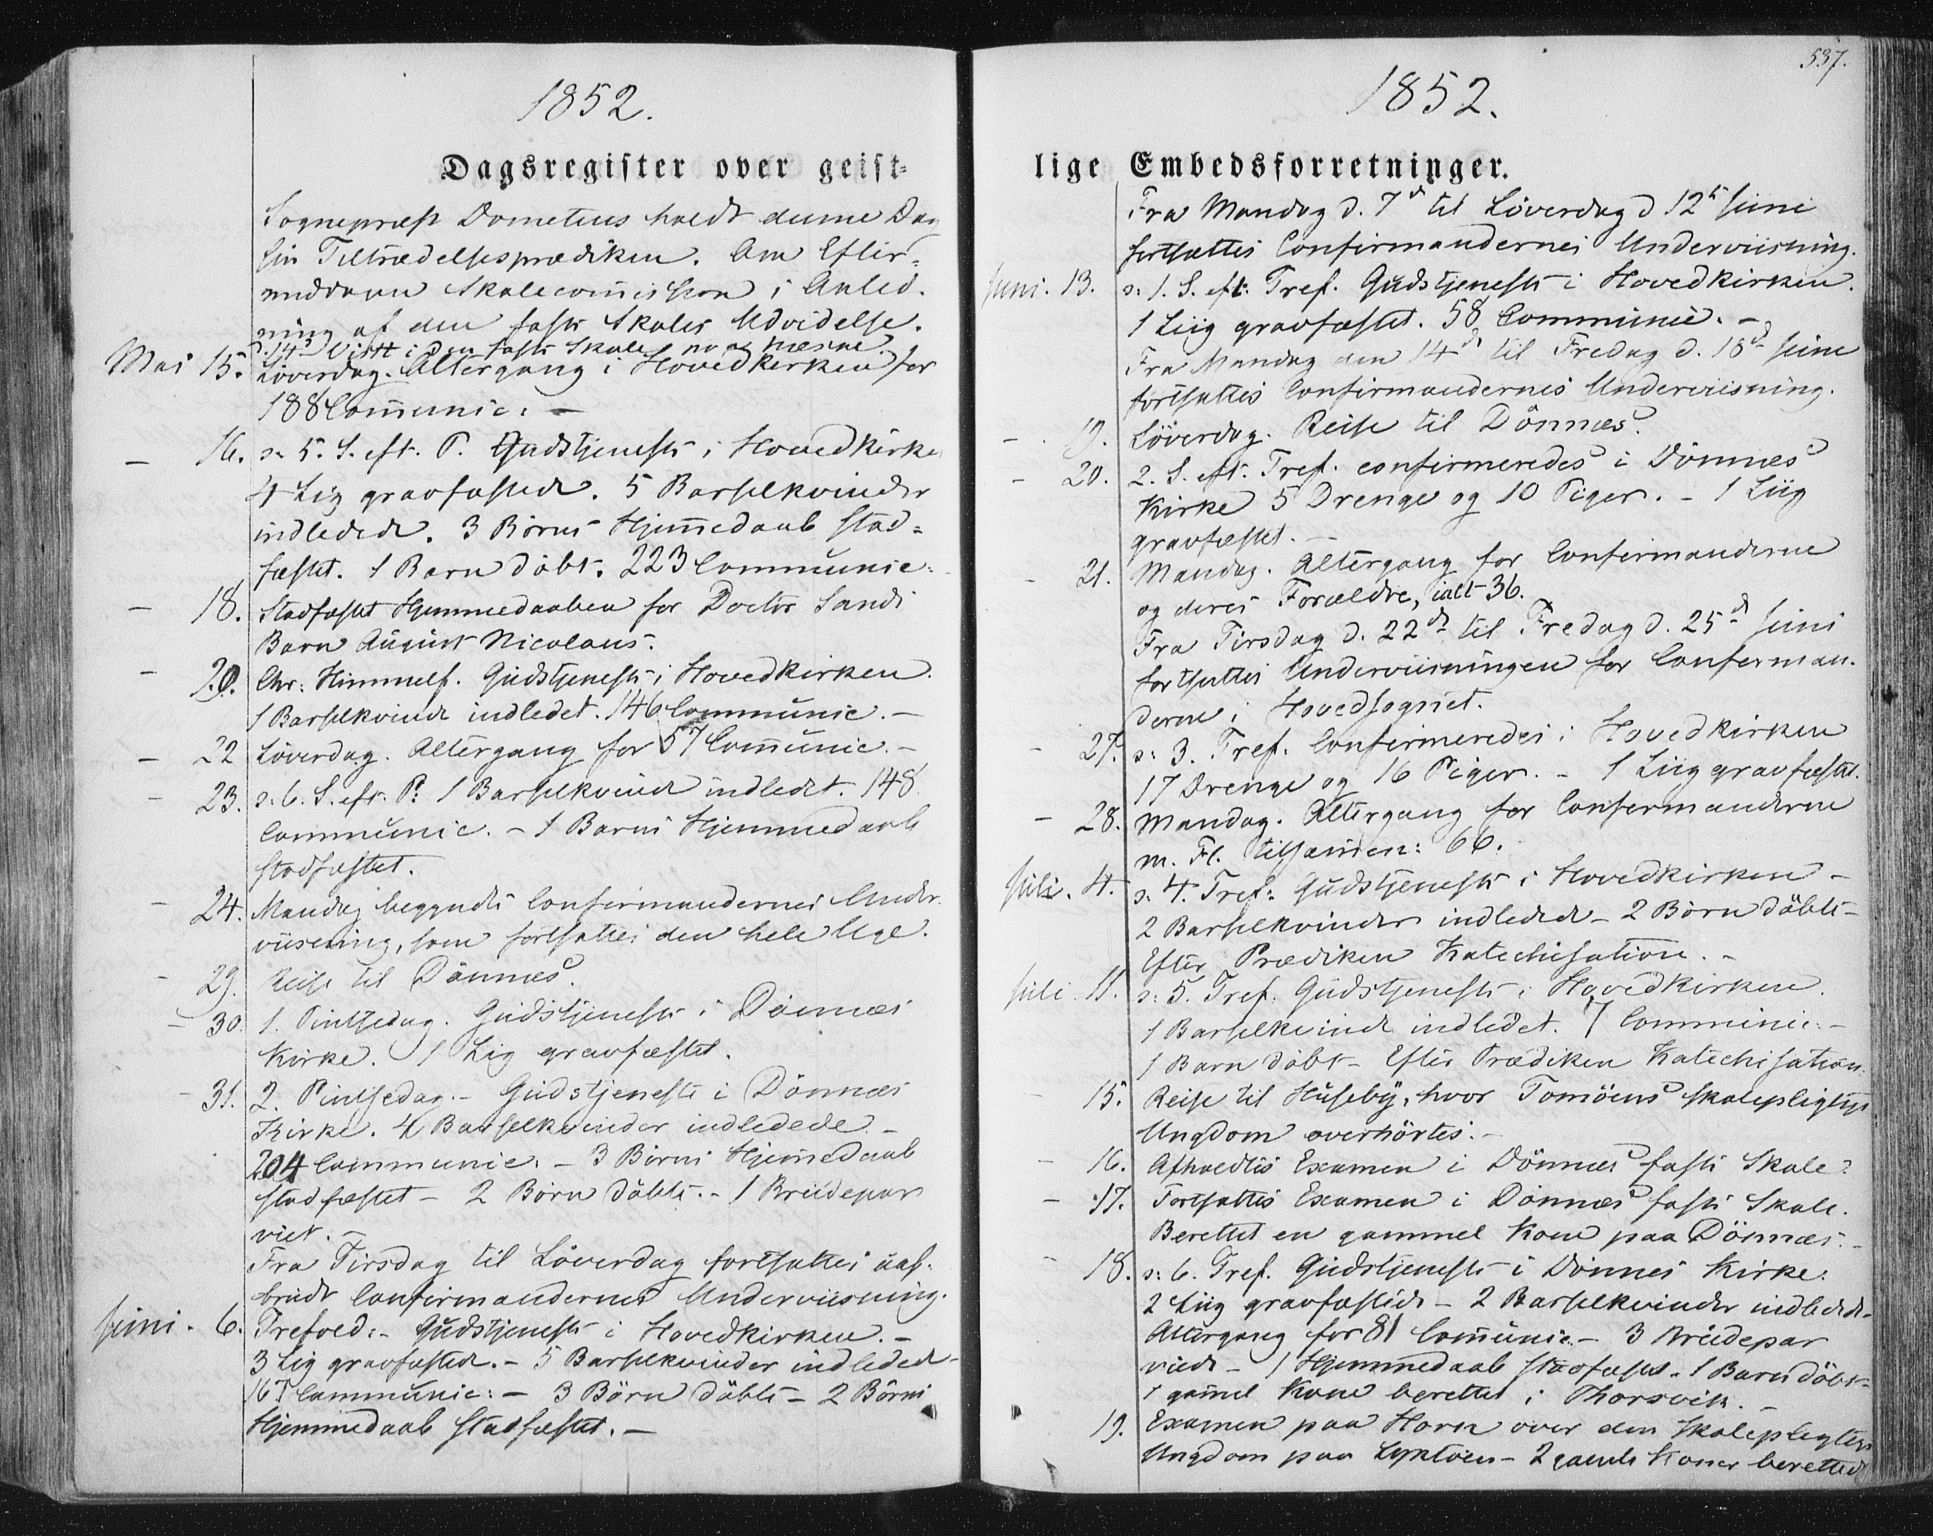 1852.
Dagsregister over geist-
Sognepræst Dometius holdt denne Dag
sin Tiltrædelsesprædiken. Om Efter-
middagen Skolecommission i Anled-
ning af den faste Skoles Udvidelse.
d. 14de Visit i den faste Skole
Mai 15. Löverdag. Altergang i Hovedkirken for
188 Communic: –
– 16. s. 5. S. eft. P. Gudstjeneste i Hovedkirke
4 Lig gravfæstede. 5 Barselkvinder
indledede. 3 Börns Hjemmedaab stad-
fæstet. 1 Barn döbt. 223 Communic:
– 18. Stadfæstet Hjemmedaaben for Doctor Sands
Barn August Nicolaus.
– 20. Chr: Himmelf. Gudstjeneste i Hovedkirken.
1 Barselkvinde indledet. 146 Communic. –
– 22 Löverdag. Altergang for 57 Communic. –
– 23. s. 6. S. eft. P. 1 Barselkvinde indledet. 148
Communic. – 1 Barns Hjemmedaab
stadfæstet.
– 24. Mandag begyndte Confirmandernes Under-
viisning, som fortsattes den hele Uge.
– 29. Reise til Dönnes.
– 30. 1. Pintsedag. Gudstjeneste i Dönnes
Kirke. 1 Lig gravfæstet.
– 31. 2. Pintsedag. – Gudstjeneste i Dönnes
Kirke. 4 Barselkvinder indledede. –
204 Communic. – 3 Börns Hjemmedaab
stadfæstet – 2 Börn döbte. – 1 Brudepar
viet. –
Fra Tirsdag til Löverdag fortsattes uaf-
brudt Confirmandernes Underviisning.
Juni. 6. Trefold: – Gudstjeneste i Hovedkirken. –
3 Lig gravfæstede. – 5 Barselkvinder indledede –
167 Communic: – 3 Börn döbte – 2 Börns
Hjemmedaab stadfæstet. –
537.
1852.
lige Embedsforretninger.
Fra Mandag d. 7de til Löverdag d 12te Juni
fortsattes Confirmandernes Underviisning.
Juni. 13. s. 1. S. eft. Tref. Gudstjeneste i Hovedkirken.
1 Liig gravfæstet. 58 Communic. –
Fra Mandag den 14de til Fredag d. 18de Juni
fortsattes Confirmandernes Underviisning.
– 19. Löverdag. Reise til Dönnes.
– 20. 2. S. eft. Tref. confirmeredes i Dönnes
Kirke 5 Drenge og 10 Piger. – 1 Liig
gravfæstet. –
– 21. Mandag. Altergang for Confirmanderne
og deres Forældre, ialt 36.
Fra Tirsdag d. 22de til Fredag d. 25de Juni
fortsattes Underviisningen for Confirman-
derne i Hovedsognet.
– 27. s. 3. Tref. Confirmeredes i Hovedkirken
17 Drenge og 16 Piger. – 1 Liig gravfæstet.
– 28. Mandag. Altergang for Confirmanderne
m. Fl. tilsamen: 66.
Juli. 4. s. 4. Tref: Gudstjeneste i Hovedkirken –
2 Barselkvinder indledede – 2 Börn döbte –
Efter Prædiken Katechisation. –
Juli. 11. s. 5. Tref: Gudstjeneste i Hovedkirken.
1 Barselkvinde indledet. 7 Communic: –
1 Barn döbt – Efter Prædiken Katechisation
– 15. Reise til Huseby, hvor Tomöens skolepligtige
Ungdom overhörtes. –
– 16. Afholdtes Examen i Dönnes faste Skole.
– 17. Fortsattes Examen i Dönnes faste Skole.
Berettet en gammel Kone paa Dönnes. –
– 18. s. 6. Tref. Gudstjeneste i Dönnes Kirke.
2 Liig gravfæstede – 2 Barselkvinder indledede –
Altergang for 81 Communic. – 3 Brudepar
viede – 1 Hjemmedaab stadfæstet. 1 Barn döbt –
1 gammel Kone berettet i Thorsvik. –
19. Examen paa Horn over den skolepligtige
Ungdom paa – 2 gamle Koner berettede